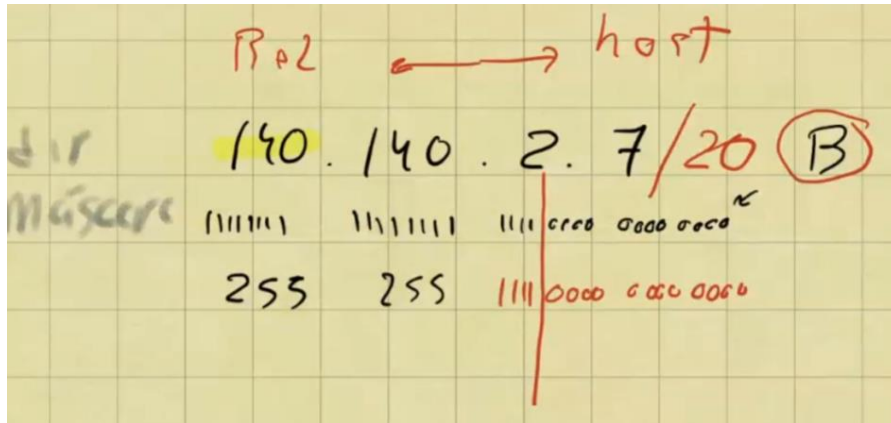 Red ↔ host
dir 140.140.2.7/20 B
Máscara 11111111 11111111 11110000 0000 0000
255 255 11110000 0000 0000